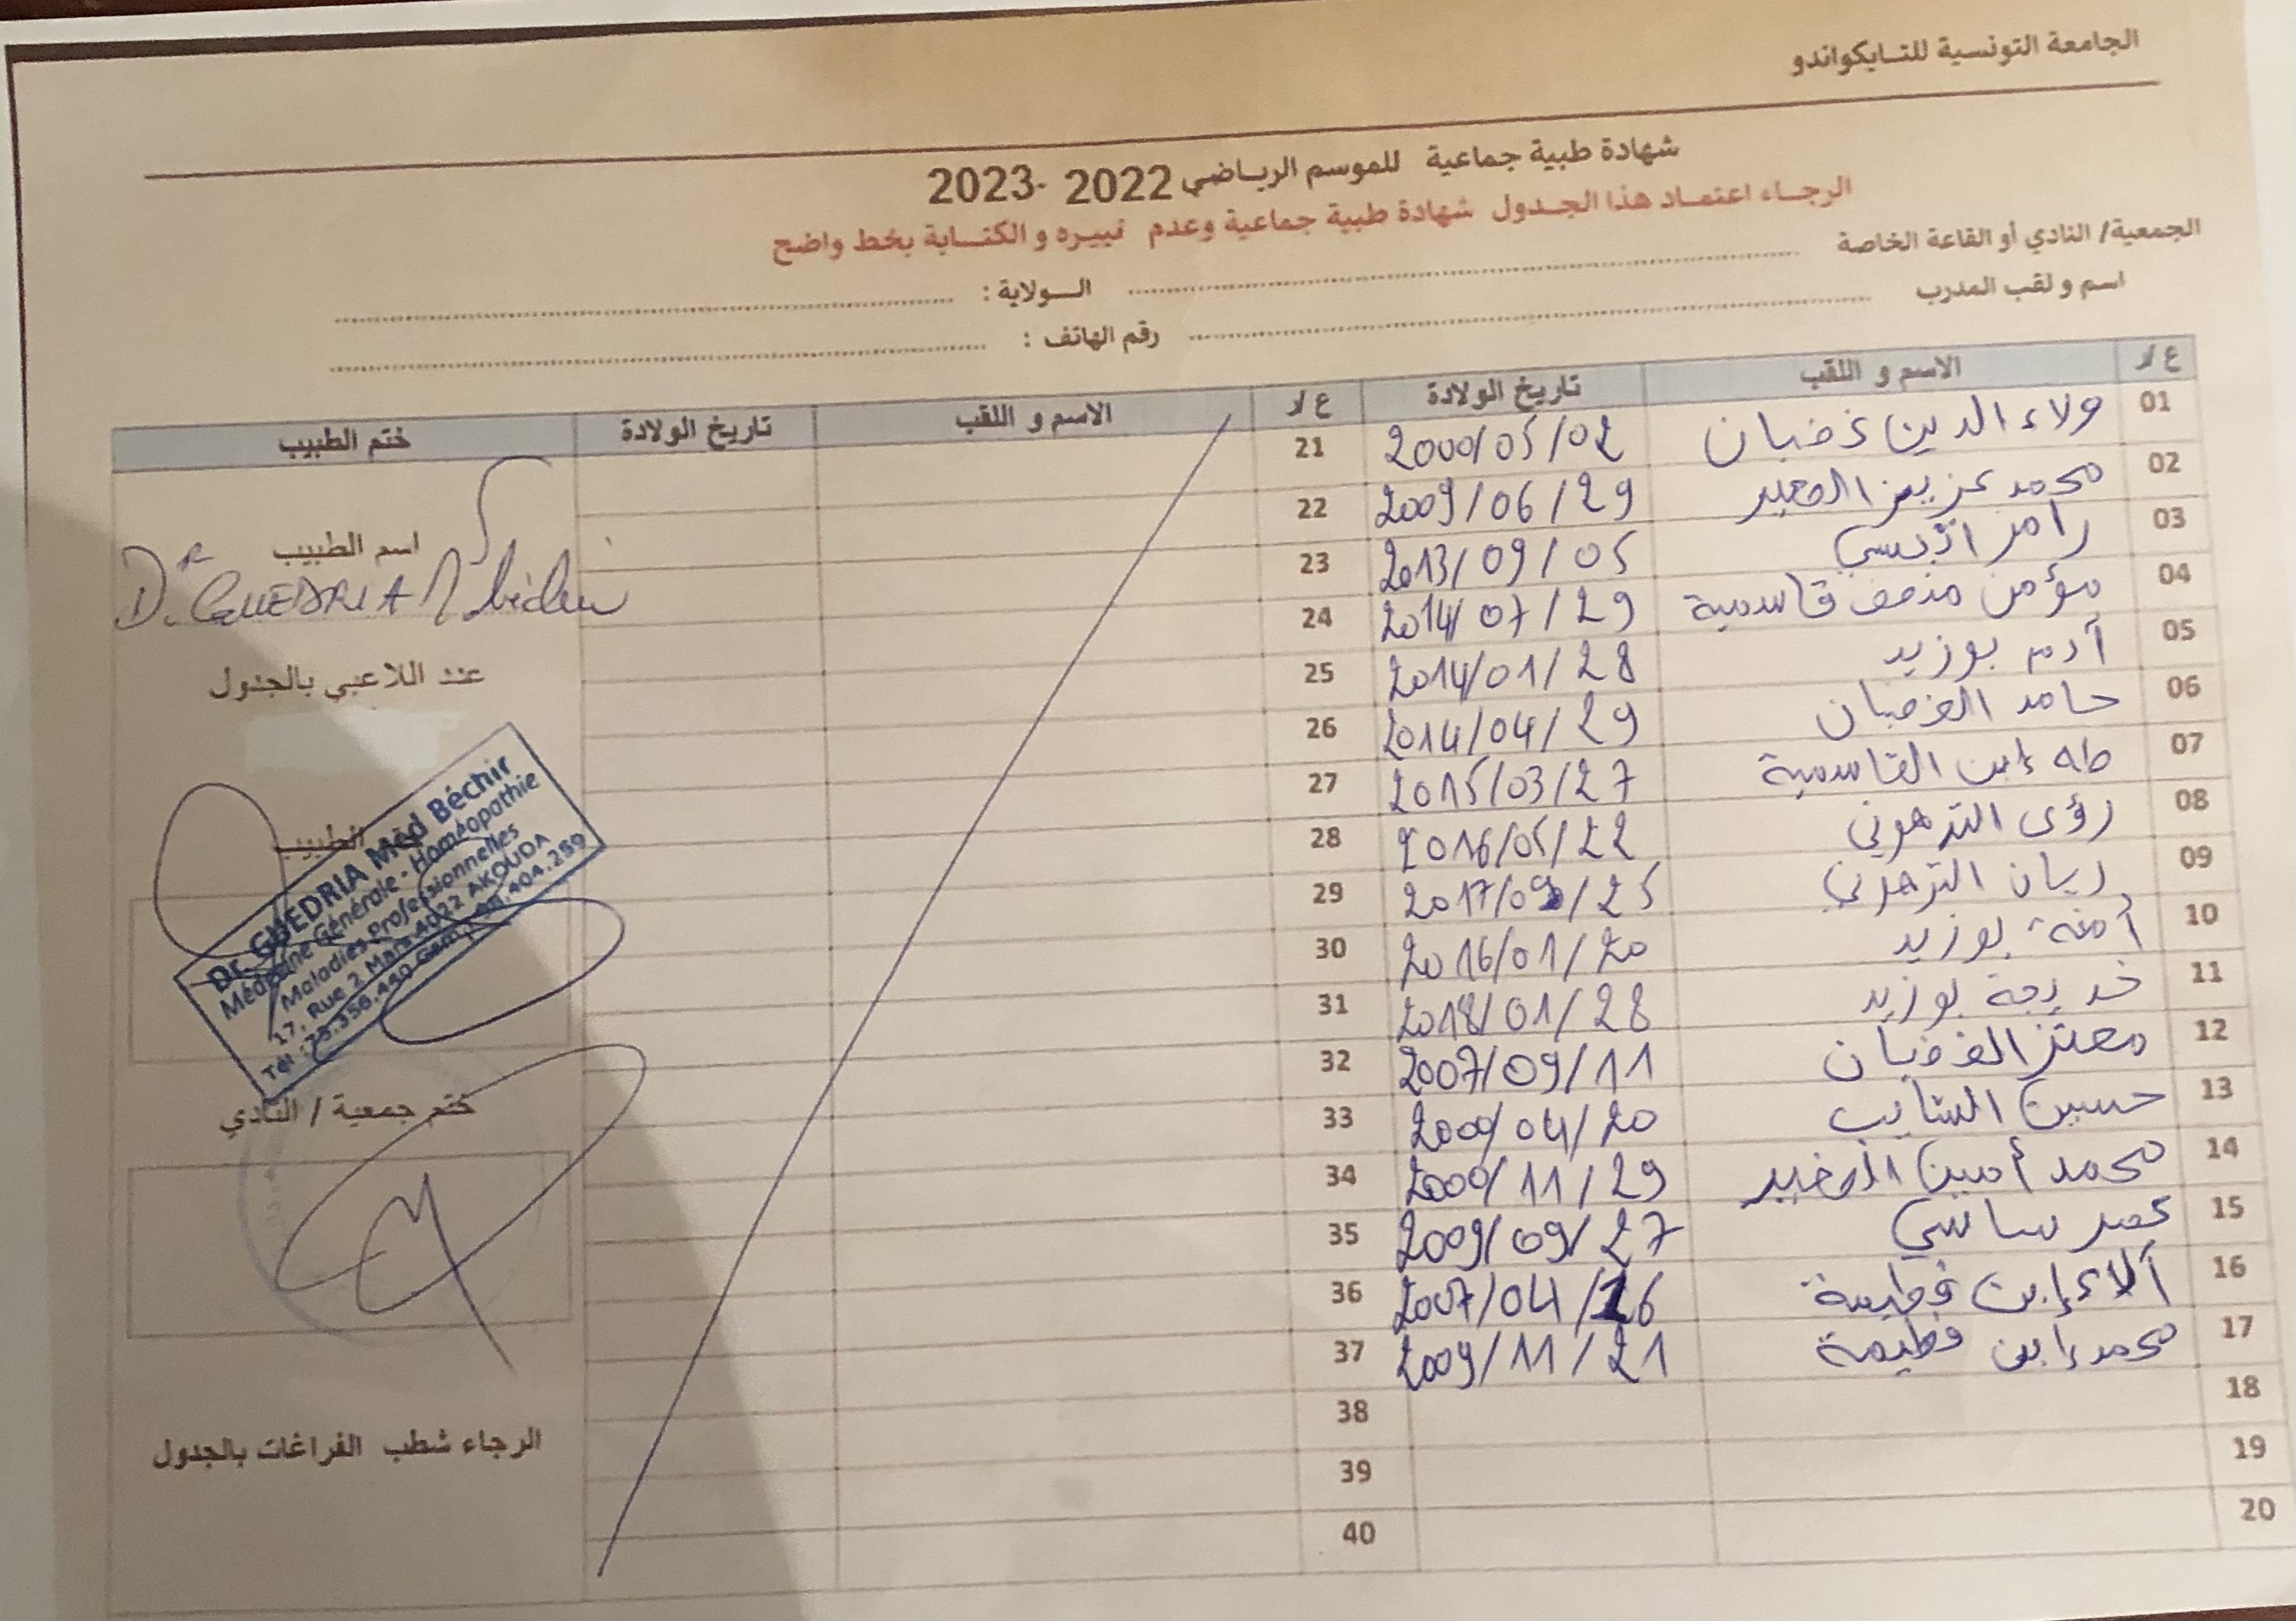 الجامعة التونسية للتـايكواندو
شهادة طبية جماعية للموسم الريـاضي 2022 -2023
الرجـاء اعتمـاد هذا الجـدول شهادة طبية جماعية وعدم تغييره و الكتـابة بخط واضح
الجمعية/ النادي أو القاعة الخاصة الـولاية :
اسم و لقب المدرب رقم الهاتف :
ع/ر الاسم و اللقب تاريخ الولادة ع/ر الاسم و اللقب تاريخ الولادة ختم الطبيب
01 ولاء الدين غضبان 2000/05/02 21
02 محمد عزيز 2009/06/29 22
03 رامز 2013/09/05 23
04 مؤمن منصف قاسمية 2014/07/29 24
05 آدم بوزيد 2014/01/28 25
06 حامد الغضبان 2014/04/29 26
07 طه إبن القاسمية 2015/03/27 27
08 رؤى الترهوني 2016/05/22 28
09 ريان الترهوني 2017/09/25 29
10 أمنة بوزيد 2016/01/20 30
11 خديجة بوزيد 2018/01/28 31
12 معتز الغضبان 2007/09/11 32
13 حسين الشايب 2000/04/20 33
14 محمد أمين 2000/11/29 34
15 ساسي 2009/09/27 35
16 آلاء إبن فطيمة 2007/04/26 36
17 محمد إبن فطيمة 2009/11/21 37
18 38
19 39
20 40
اسم الطبيب
Dr GUEDRIA
عند اللاعبي بالجدول
الطبيب
Dr. GUEDRIA Med Béchir
Médecine Générale - Homéopathie
Maladies Professionnelles
17, Rue 2 Mars 4022 AKOUDA
ختم جمعية / النادي
الرجاء شطب الفراغات بالجدول